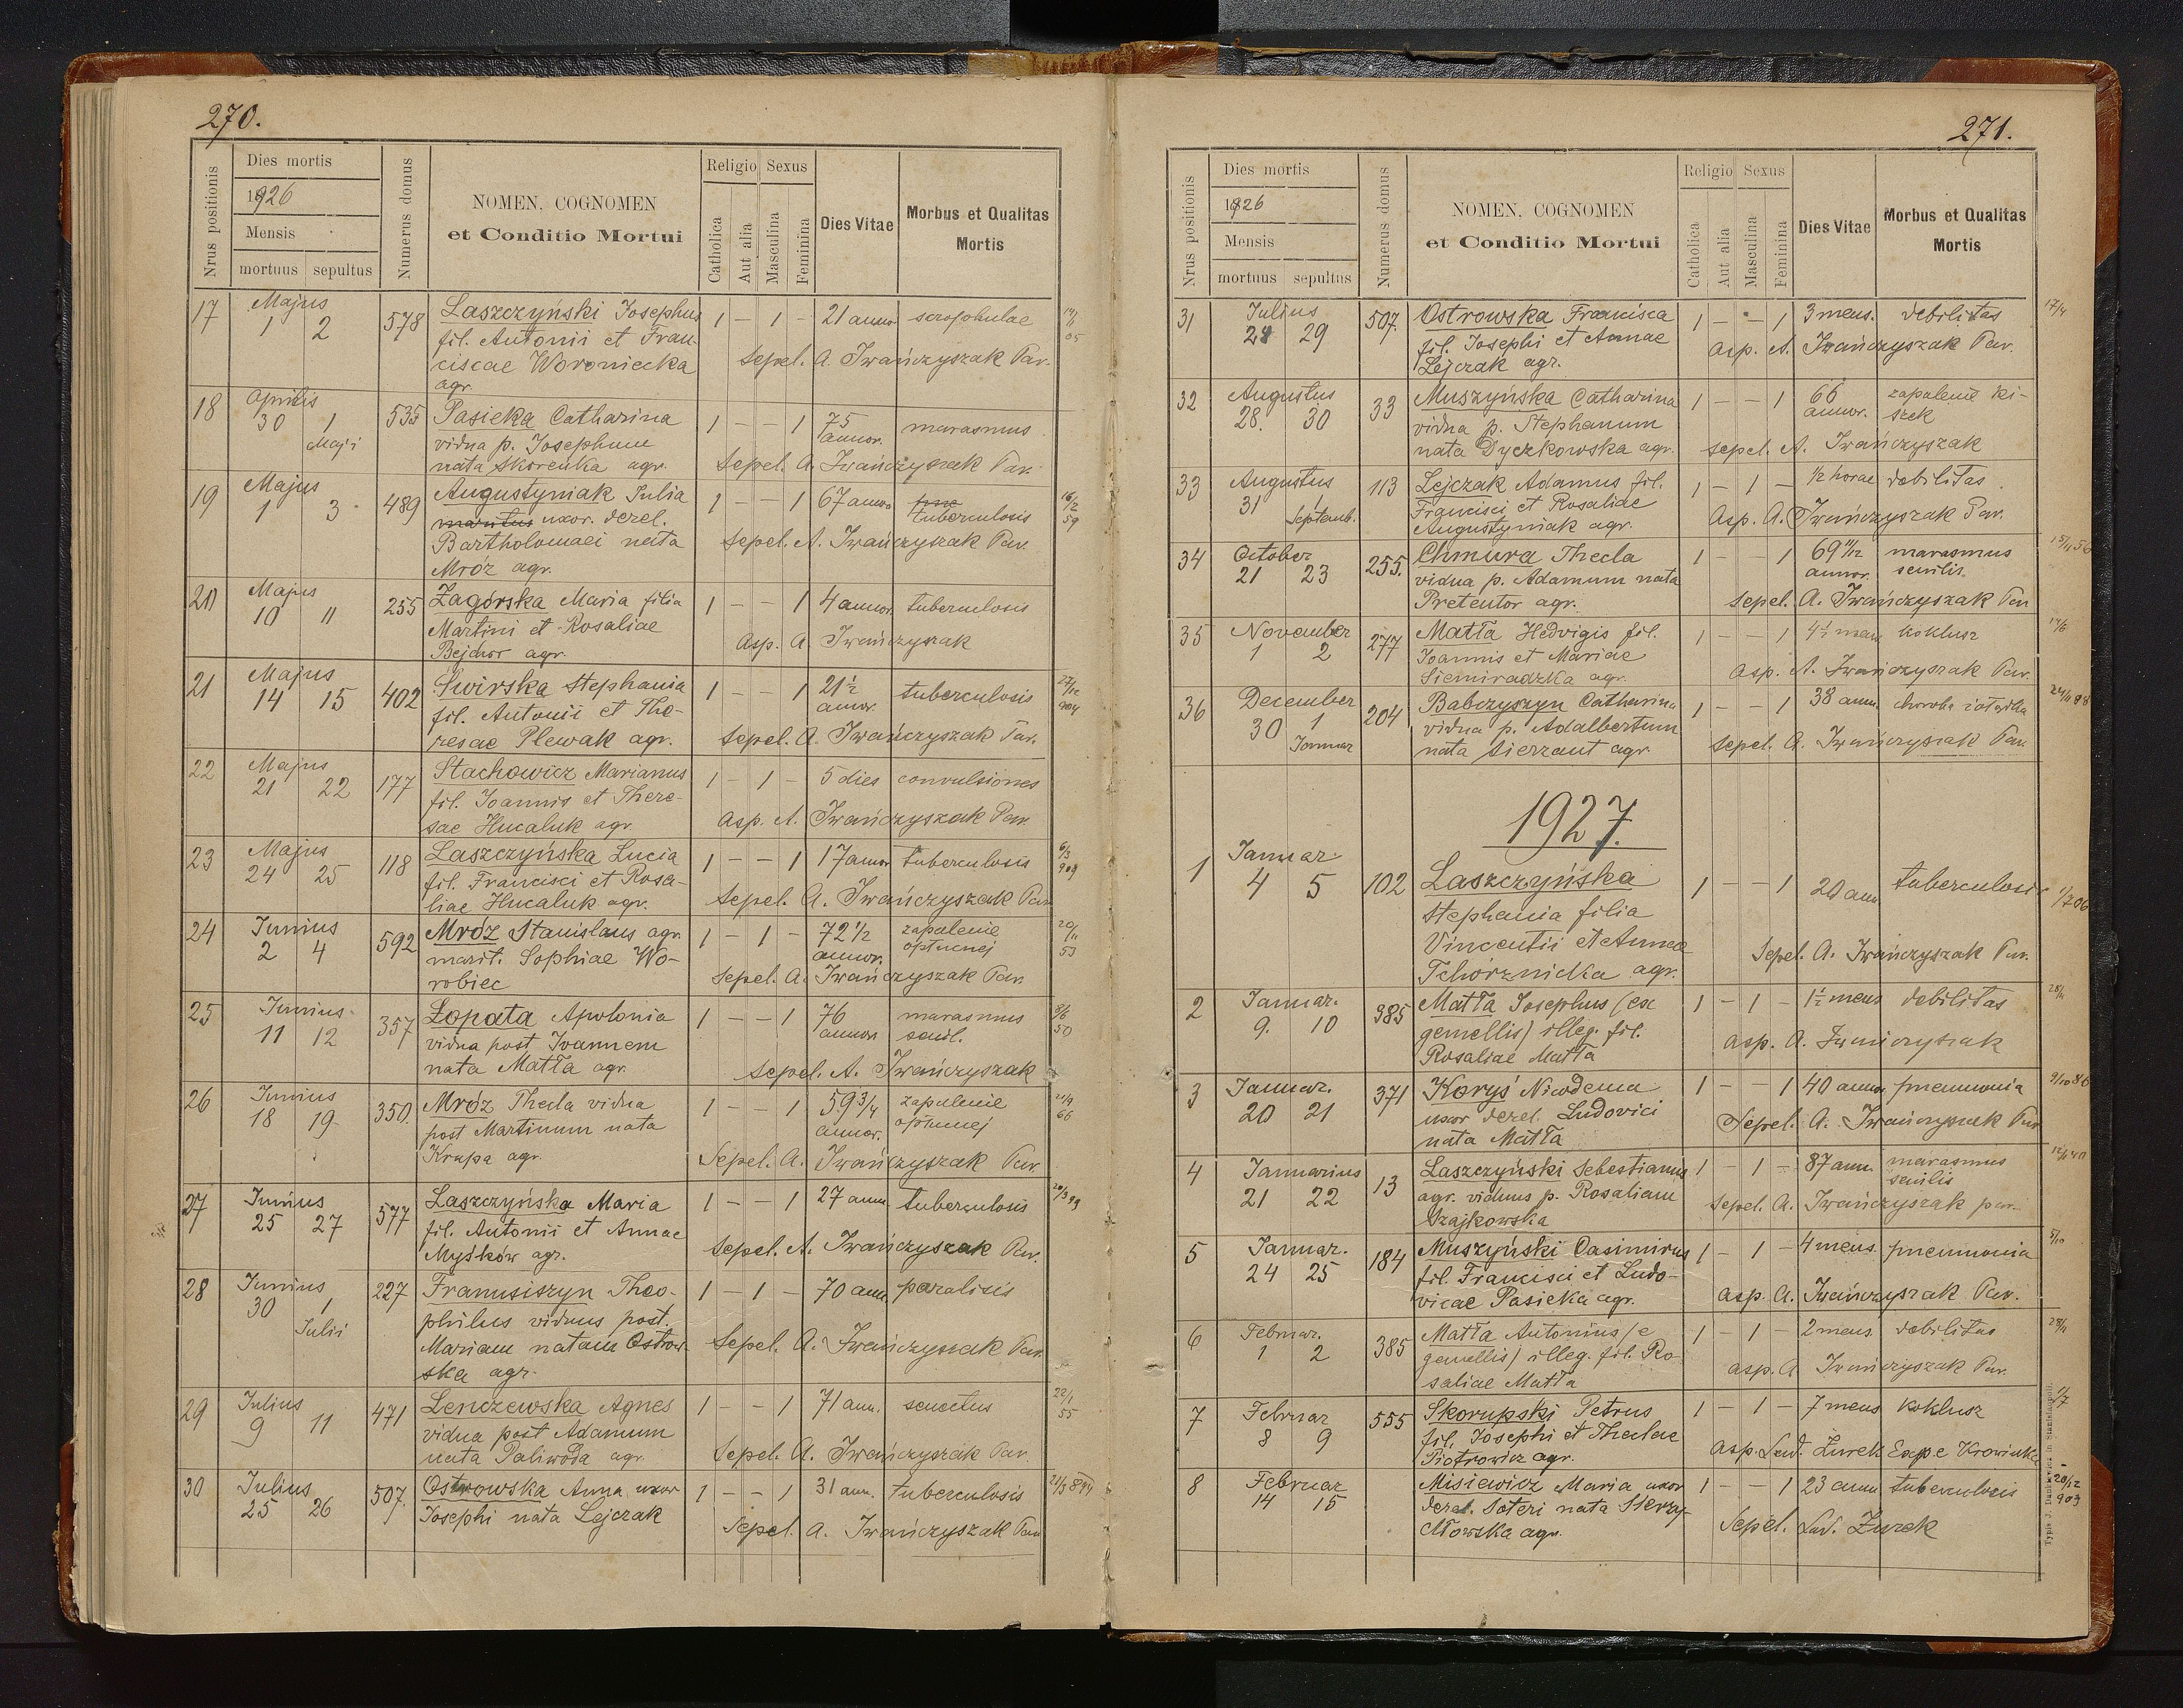 270.
Nrus positionis
Dies mortis
1926
Mensis
mortuus sepultus
Numerus domus
NOMEN, COGNOMEN
et Conditio Mortui
Religio Sexus
Catholica
Aut alia
Masculina
Feminina
Dies Vitae
Morbus et Qualitas
Mortis
17 Majus 1 2 578 Laszczyński Josephus 1 - 1 - 21 annor. scrophulae
fil. Antonii et Fran-
ciscae Woroniecka
agr.
Sepel. A. Iwańczyszak Par.
18 Aprilis 30 1 Maji 535 Pasieka Catharina 1 - - 1 75 annor. marasmus
vidua p. Josephum
nata Skorenka agr.
Sepel. A. Iwańczyszak Par.
19 Majus 1 3 489 Augustyniak Julia 1 - - 1 67 annor. tuberculosis 16/2 59
maritus uxor. derel.
Bartholomaei nata
Mróz agr.
Sepel. A. Iwańczyszak Par.
20 Majus 10 11 255 Zagórska Maria filia 1 - - 1 4 annor. tuberculosis
Martini et Rosaliae
Bejcar agr.
Asp. A. Iwańczyszak
21 Majus 14 15 402 Swirska Stephania 1 - - 1 21½ annor. tuberculosis 27/12 904
fil. Antonii et The-
resae Plewak agr.
Sepel. A. Iwańczyszak Par.
22 Majus 21 22 177 Stachowicz Marianus 1 - 1 - 5 dies convulsiones
fil. Joannis et There-
sae Hucaluk agr.
Asp. A. Iwańczyszak Par.
23 Majus 24 25 118 Laszczyńska Lucia 1 - - 1 17 annor. tuberculosis 6/3 909
fil. Francisci et Rosa-
liae Hucaluk agr.
Sepel. A. Iwańczyszak Par
24 Junius 2 4 592 Mróz Stanislaus agr. 1 - 1 - 72 1/2 annor. zapalenie opłucnej 20/11 53
marit. Sophiae Wo-
robiec
Sepel. A. Iwańczyszak Par.
25 Junius 11 12 357 Łopata Apolonia 1 - - 1 76 annor. marasmus senil. 8/6 50
vidua post Joannem
nata Matła agr.
Sepel. A. Iwańczyszak
26 Junius 18 19 350. Mróz Thecla vidua 1 - - 1 59 3/4 annor. zapalenie opłucnej 21/9 66
post Martinum nata
Krupa agr.
Sepel. A. Iwańczyszak Par
27 Junius 25 27 577 Laszczyńska Maria 1 - - 1 27 ann. tuberculosis 20/3 99
fil. Antonii et Annae
Myśków agr.
Sepel. A. Iwańczyszak Par.
28 Junius 30 1 Julii 227 Franusiszyn Theo- 1 - 1 - 70 ann. paralisis
philus viduus post.
Mariam natam Ostrow-
ska agr.
Sepel. A. Iwańczyszak Par.
29 Julius 9 11 471 Lenczewska Agnes 1 - - 1 71 ann. senectus 22/1 55
vidua post Adamum
nata Paliwoda agr.
Sepel. A. Iwańczyszak Par.
30 Julius 25 26 507. Ostrowska Anna uxor 1 - - 1 31 ann. tuberculosis
Josephi nata Lejczak
Sepel. A. Iwańczyszak Par
271.
Nrus positionis
Dies mortis
1926
Mensis
mortuus sepultus
Numerus domus
NOMEN, COGNOMEN
et Conditio Mortui
Religio Sexus
Catholica
Aut alia
Masculina
Feminina
Dies Vitae
Morbus et Qualitas
Mortis
31 Julius 28 29 507. Ostrowska Francisca 1 - - 1 3 mens. debilitas 17/4
fil. Josephi et Annae
Lejczak agr.
Asp. A. Iwańczyszak Par.
32 Augustus 28. 30 33 Muszyńska Catharina 1 - - 1 66 annor. zapalenie ki-
szek
vidua p. Stephanum
nata Dyczkowska agr.
sepel. A. Iwańczyszak
33 Augustus 31 1 Septemb. 113 Lejczak Adamus fil. 1 - 1 - 1/2 horae debilitas
Francisci et Rosaliae
Augustyniak agr.
Asp. A. Iwańczyszak Par.
34 October 21 23 255. Chmura Thecla 1 - - 1 69 11/12 annor. marasmus senilis. 15/11 56
vidua p. Adamum nata
Pretentor agr.
Sepel. A. Iwańczyszak Par
35 November 1 2 277 Matła Hedvigis fil. 1 - - 1 4½ mens koklusz 17/6
Joannis et Mariae
Siemiradzka agr.
Asp. A. Iwańczyszak Par.
36 December 30 1 Januar 204 Babczyszyn Catharina 1 - - 1 38 ann. choroba żołądka 24/11 88
vidua p. Adalbertum
nata Sierzant agr.
Sepel. A. Iwańczyszak Par.
1927.
1 Januar 4 5 102 Laszczyńska 1 - - 1 20 ann. tuberculosis 1/7 06
Stephania filia
Vincentii et Annae
Tchórznicka agr.
Sepel. A. Iwańczyszak Par.
2 Januar. 9. 10 385 Matła Josephus (ex 1 - 1 - 1½ mens debilitas 28/11
gemellis) illeg. fil.
Rosaliae Matła
asp. A. Iwańczyszak
3 Januar. 20 21 371 Koryś Nicodema 1 - - 1 40 annor. pneumonia 9/10 86
uxor derel. Ludovici
nata Matła
Sepel. A. Iwańczyszak Par
4 Januarius 21 22 13 Laszczyński Sebestianus 1 - 1 - 87 ann. marasmus senilis
agr. viduus p. Rosaliam
Szajkowska
Sepel. A. Iwańczyszak par.
5 Januar. 24 25 184 Muszyński Casimirus 1 - 1 - 4 mens. pneumonia 5/10
fil. Francisci et Ludo-
vicae Pasieka agr.
asp. A. Iwańczyszak Par.
6 Februar. 1 2 385 Matła Antonius (e 1 - 1 - 2 mens. debilitas 28/11
gemellis) illeg. fil. Ro-
saliae Matła
asp. A. Iwańczyszak Par.
7 Februar 8 9 555 Skorupski Petrus 1 - 1 - 7 mens koklusz 1/7
fil. Josephi et Theclae
Piotrowicz agr.
asp. Lud. Żurek Exp. e Krowinka
8 Februar 14 15 Misiewicz Maria uxor 1 - - 1 23 ann. tuberculosis 20/12 903
derel. Soteri nata
agr.
Sepel. Lud. Żurek
Typis J. Dankiewicz in Stanislaopoli.